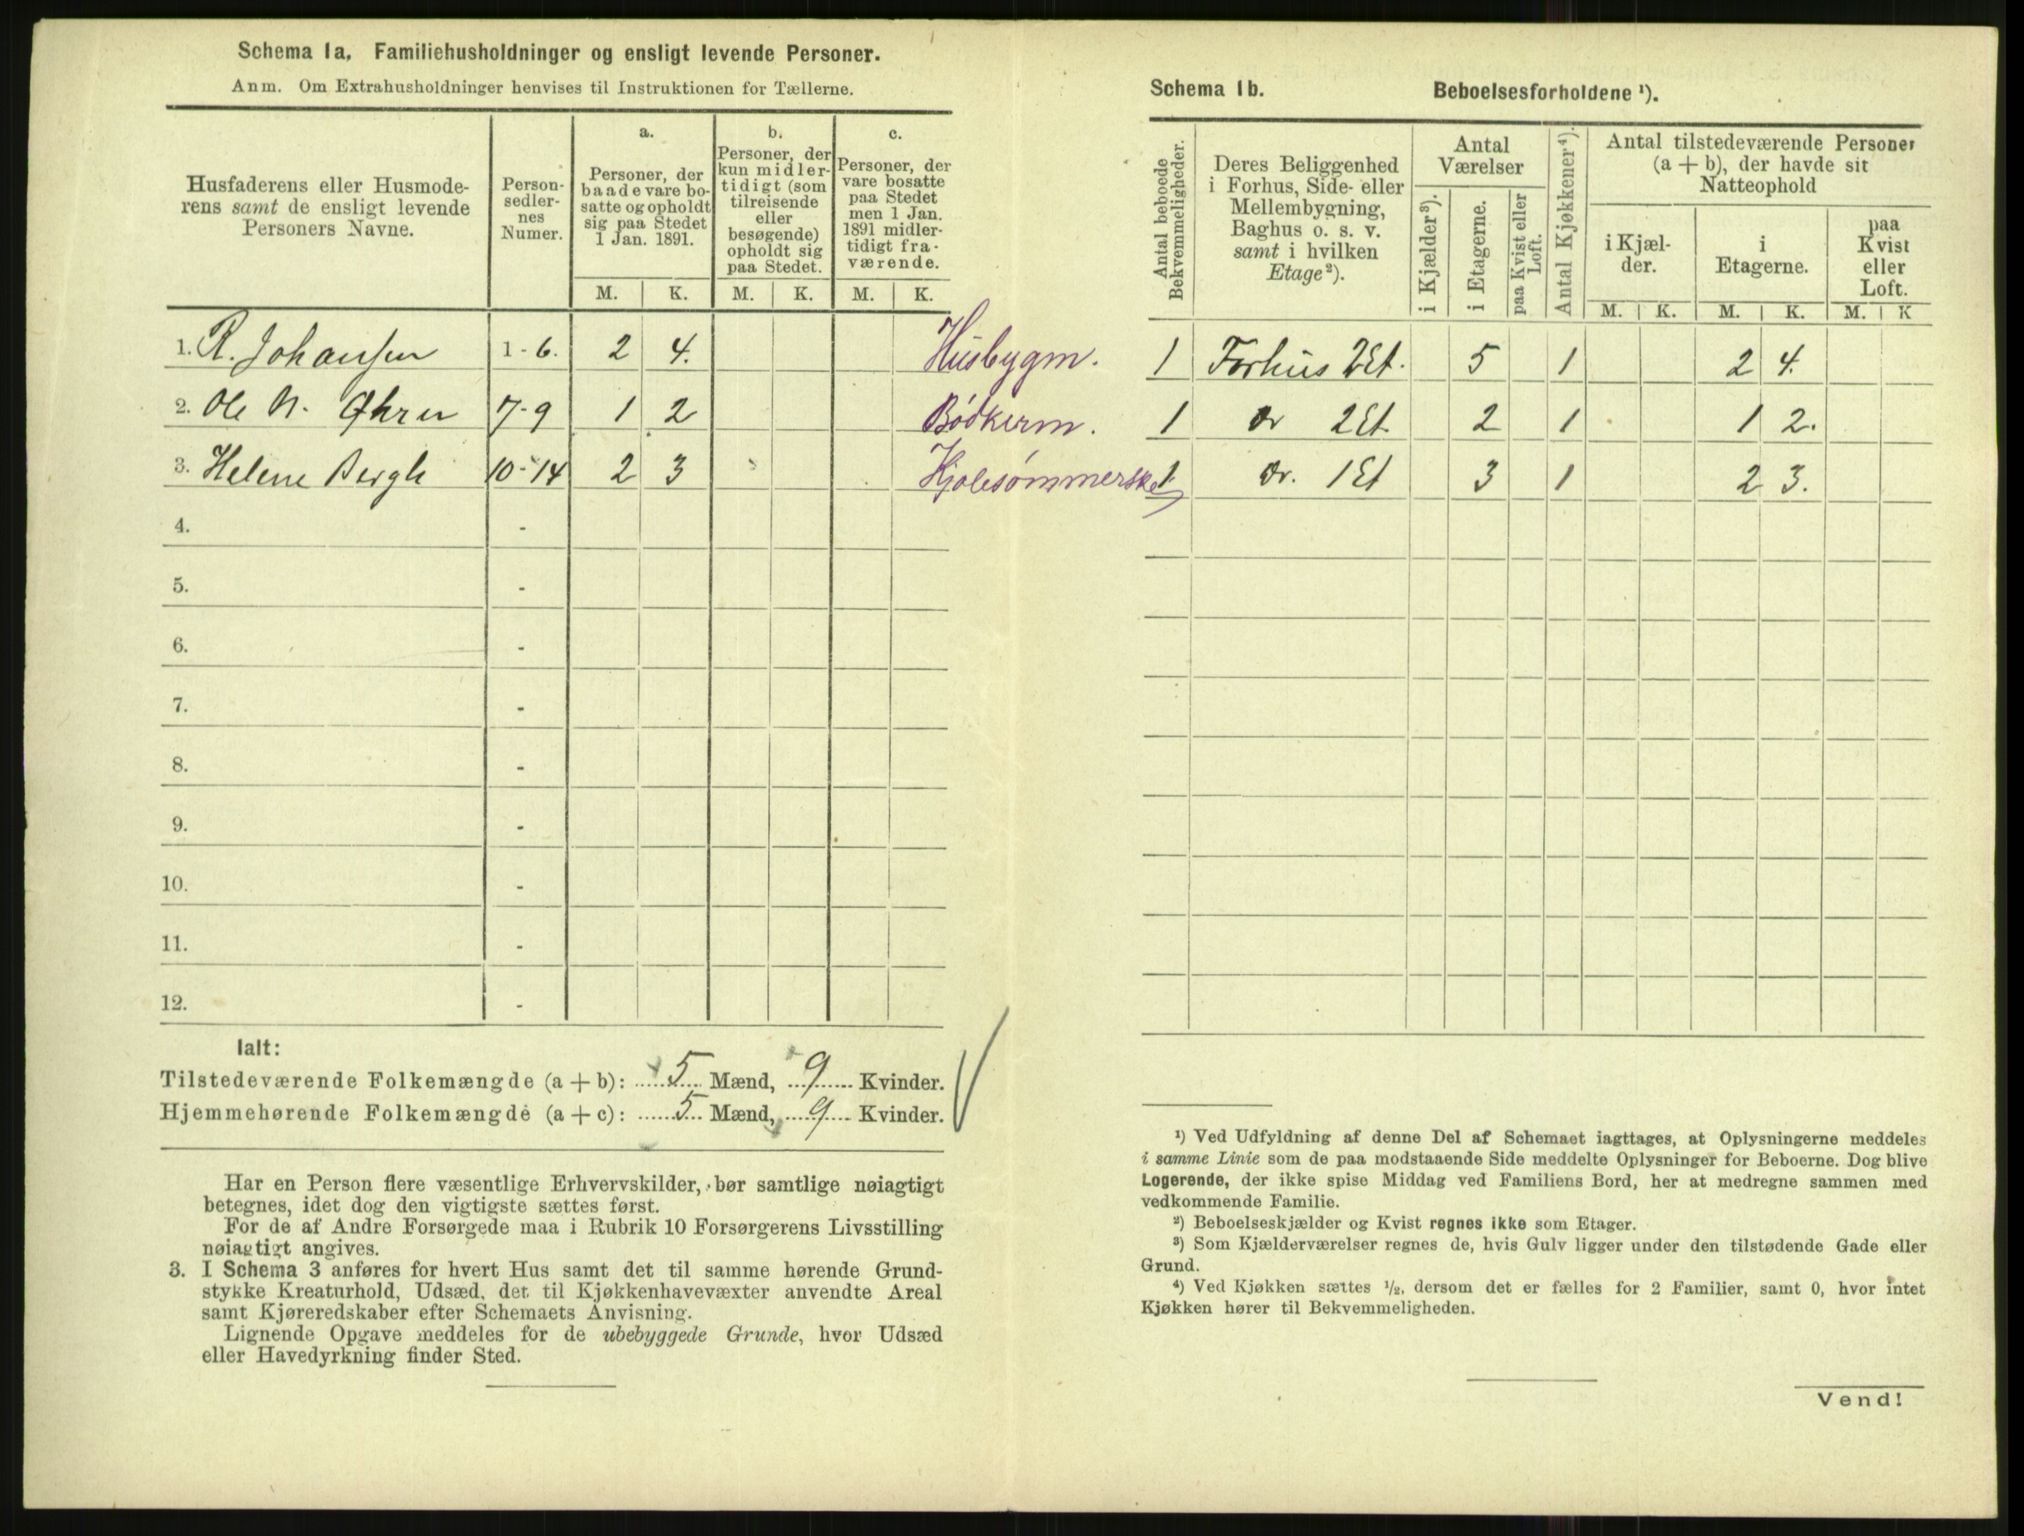 Schema 1a. Familiehusholdninger og ensligt levende Personer.
Anm. Om Extrahusholdninger henvises til Instruktionen for Tællerne.
Husfaderens eller Husmode-
rens samt de ensligt levende
Personers Navne.
Person-
sedler-
nes
Numer.
a.
Personer, der
baade vare bo-
satte og opholdt
sig paa Stedet
1 Jan. 1891.
b.
Personer, der
kun midler-
tidigt (som
tilreisende
eller
besøgende)
opholdt sig
paa Stedet.
c.
Personer, der
vare bosatte
paa Stedet
men 1 Jan.
1891 midler-
tidigt fra-
værende.
M. K. M. K. M. K.
1. R. Johansen 1-6. 2 4. Husbygm.
2. Ole N. Øhren 7-9 1 2 Bödkerm.
3. Helene Bergh 10-14 2 3 Kjolesømmerske
4. -
5. -
6. -
7. -
8. -
9. -
10. -
11. -
12. -
Ialt:
Tilstedeværende Folkemængde (a + b): 5 Mænd, 9 Kvinder.
Hjemmehørende Folkemængde (a + c): 5 Mænd, 9 Kvinder.
Har en Person flere væsentlige Erhvervskilder, bør samtlige nøiagtigt
betegnes, idet dog den vigtigste sættes først.
For de af Andre Forsørgede maa i Rubrik 10 Forsørgerens Livsstilling
nøiagtigt angives.
3. I Schema 3 anføres for hvert Hus samt det til samme hørende Grund-
stykke Kreaturhold, Udsæd, det til Kjøkkenhavevæxter anvendte Areal
samt Kjøreredskaber efter Schemaets Anvisning.
Lignende Opgave meddeles for de ubebyggede Grunde, hvor Udsæd
eller Havedyrkning finder Sted.
Schema 1b. Beboelsesforholdene ¹).
Antal beboede
Bekvemmeligheder.
Deres Beliggenhed
i Forhus, Side- eller
Mellembygning,
Baghus o. s. v.
samt i hvilken
Etage ²).
Antal
Værelser
i Kjælder ³).
i Etagerne.
paa Kvist eller
Loft.
Antal Kjøkkener ⁴).
Antal tilstedeværende Personer
(a + b), der havde sit
Natteophold
i Kjæl-
der.
i
Etagerne.
paa
Kvist
eller
Loft.
M. K. M. K. M. K
1 Forhus 2 Et. 5 1 2 4.
1 do 2 Et. 2 1 1 2.
1 do. 1 Et 3 1 2 3.
¹) Ved Udfyldning af denne Del af Schemaet iagttages, at Oplysningerne meddeles
i samme Linie som de paa modstaaende Side meddelte Oplysninger for Beboerne. Dog blive
Logerende, der ikke spise Middag ved Familiens Bord, her at medregne sammen med
vedkommende Familie.
²) Beboelseskjælder og Kvist regnes ikke som Etager.
³) Som Kjælderværelser regnes de, hvis Gulv ligger under den tilstødende Gade eller
Grund.
⁴) Ved Kjøkken sættes ½, dersom det er fælles for 2 Familier, samt 0, hvor intet
Kjøkken hører til Bekvemmeligheden.
Vend!